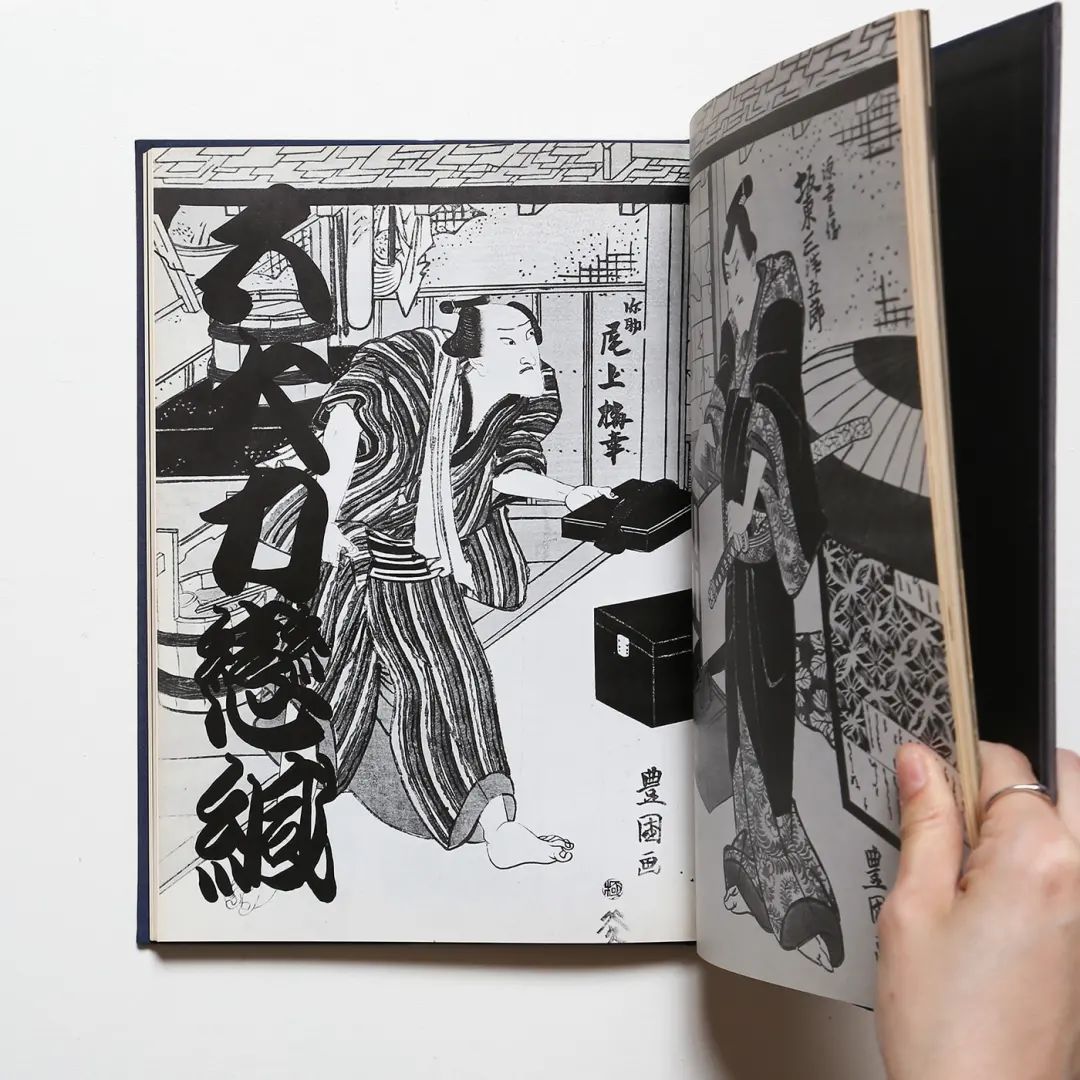 源五兵衛
坂東三津五郎
豊國
弥助
尾上梅幸
豊國画
極
五大力戀緘